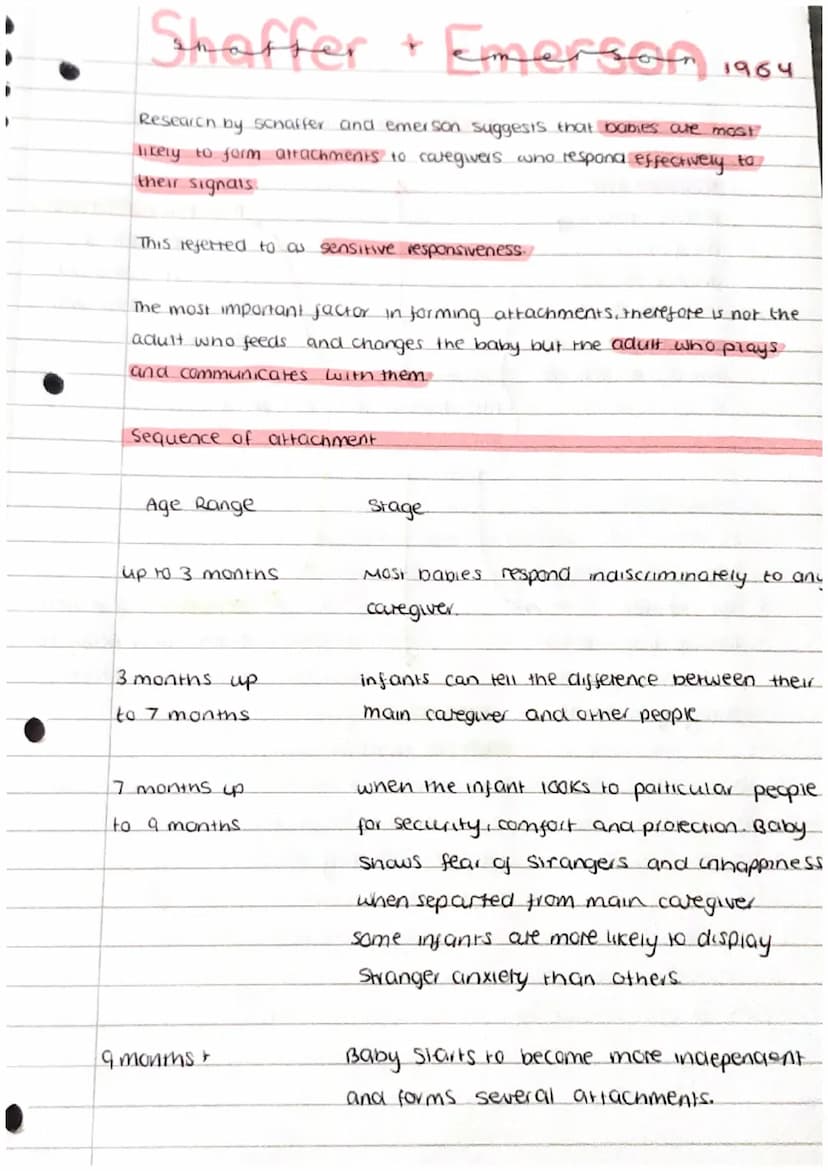 Shaffer + Emerson 1964
shaffer + emerson
Research by schaffer and emerson suggests that babies are most
likely to form attachments to caregivers who respond effectively to
their signals.
This referred to as sensitive responsiveness.
The most important factor in forming attachments, therefore is not the
adult who feeds and changes the baby but the adult who plays
and communicates with them.
Sequence of attachment
Age Range Stage
up to 3 months Most babies respond indiscriminately to any
caregiver.
3 months up infants can tell the difference between their
to 7 months main caregiver and other people
7 months up when the infant looks to particular people
to 9 months for security, comfort and protection. Baby
shows fear of strangers and unhappiness
when separted from main caregiver
some infants are more likely to display
Stranger anxiety than others.
9 months + Baby starts to become more independent
and forms several attachments.